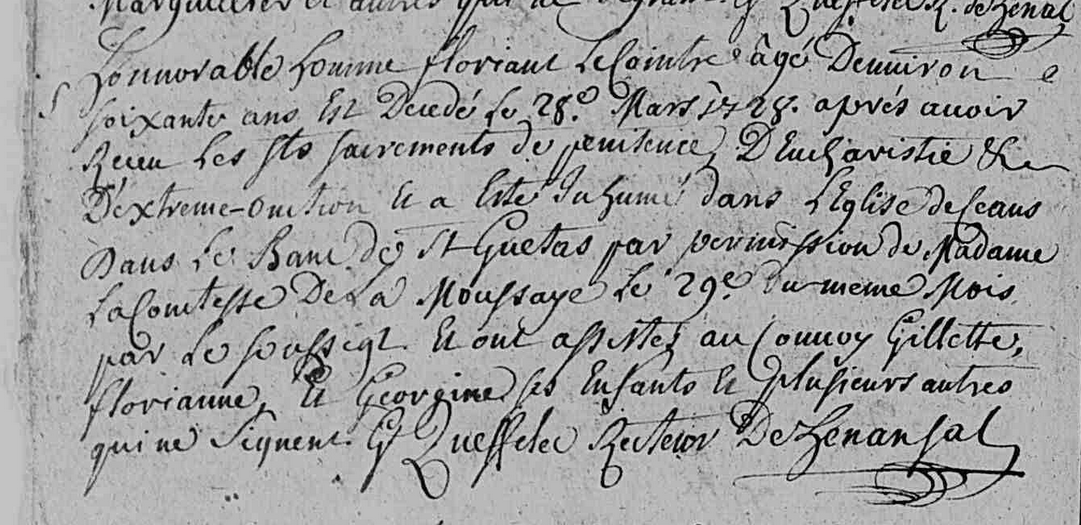 et autres qui ne
honnorable homme floriant LeCointre âgé Denuiron
soixante ans Est Decedé Le 28e. Mars 1728. aprés auoir
Receu Les Sts sacrements de penitence, D'Eucharistie &
D'éxtreme-onction Et a Esté Inhumé dans L'Eglise de Ceans
Dans Le Banc de St Guetas par permission de Madame
La Comtesse De La Moussaye Le 29e. du meme Mois
par Le soussigt. Et ont assistés au Conuoy Gillette,
florianne, Et Georgine ses Enfants Et plusieurs autres
qui ne signent. G Queffelec Recteur De henansal